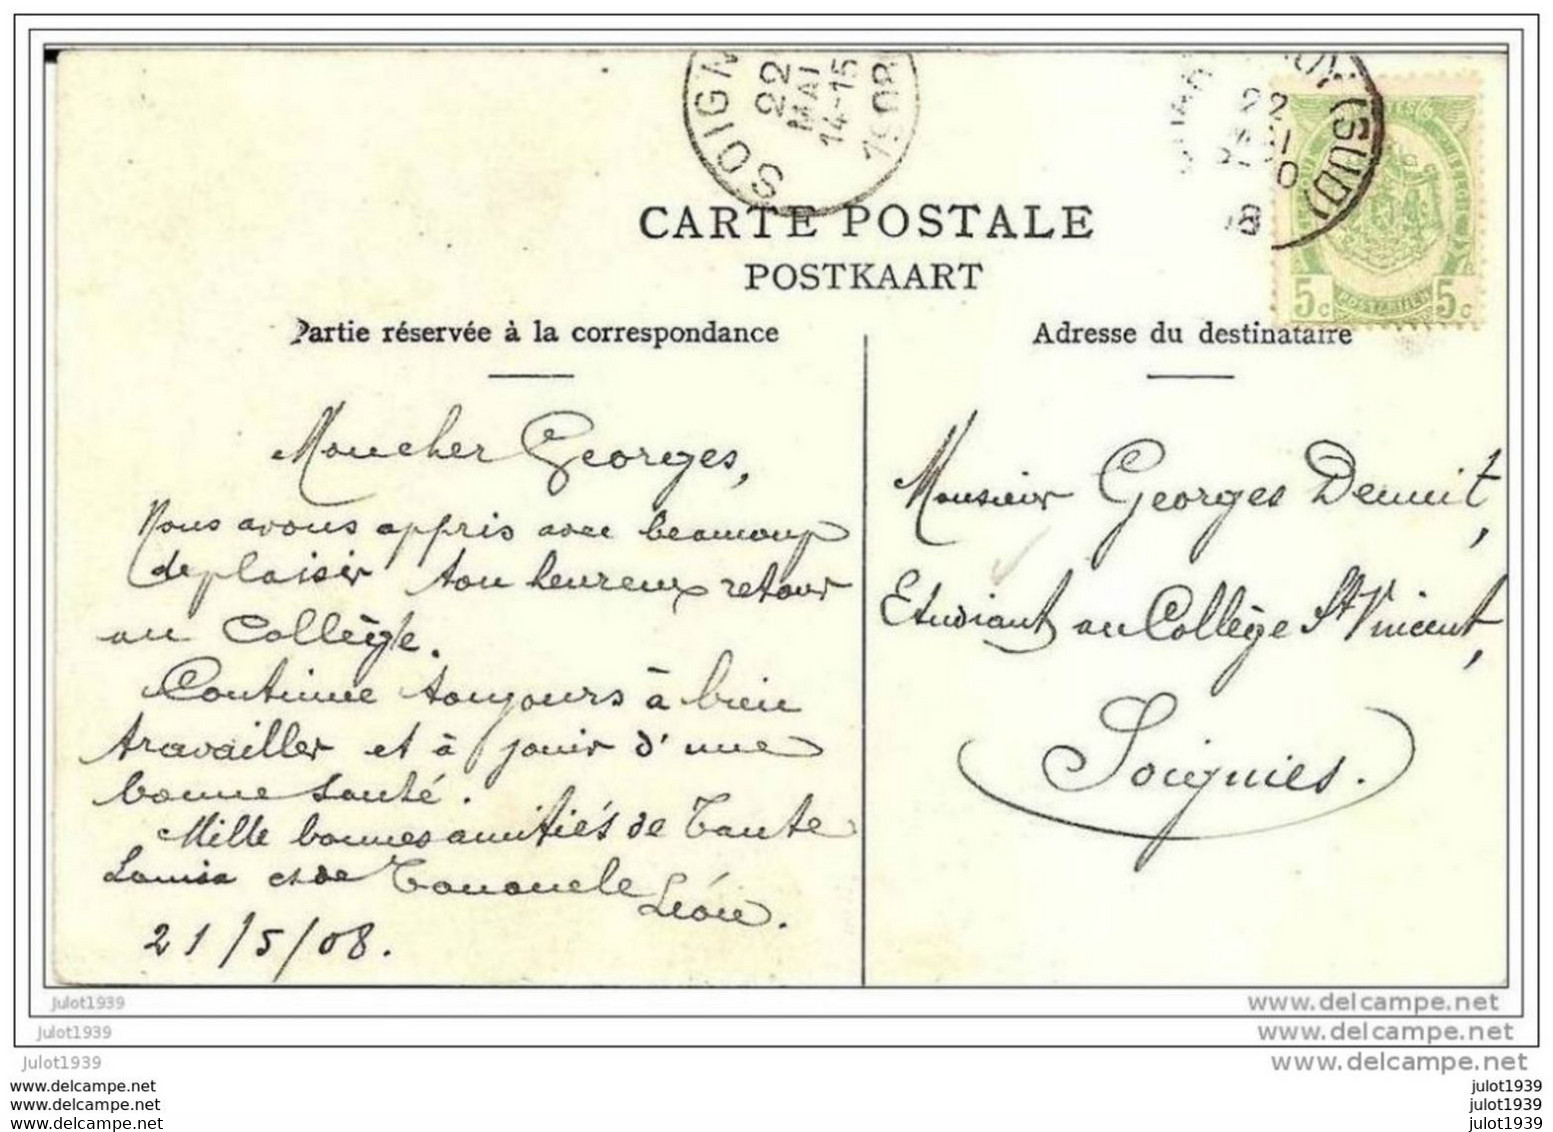 SOIGN
22
MAI
14-15
1908
(SUD)
22
CARTE POSTALE
POSTKAART
5c POSTERIJEN 5c
Partie réservée à la correspondance
Adresse du destinataire
Mon cher Georges,
Nous avons appris avec beaucoup
de plaisir ton heureux retour
au Collège.
Continue toujours à bien
travailler et à jouir d'une
bonne santé.
Mille bonnes amitiés de Tante
Louisa et de Tononcle
Léon.
21/5/08.
Monsieur Georges Demuit,
Etudiant au Collège St Vincent,
Soignies.
Julot1939
www.delcampe.net
Julot1939
www.delcampe.net
Julot1939
www.delcampe.net
www.delcampe.net
julot1939
www.delcampe.net
julot1939
www.delcampe.net
julot1939